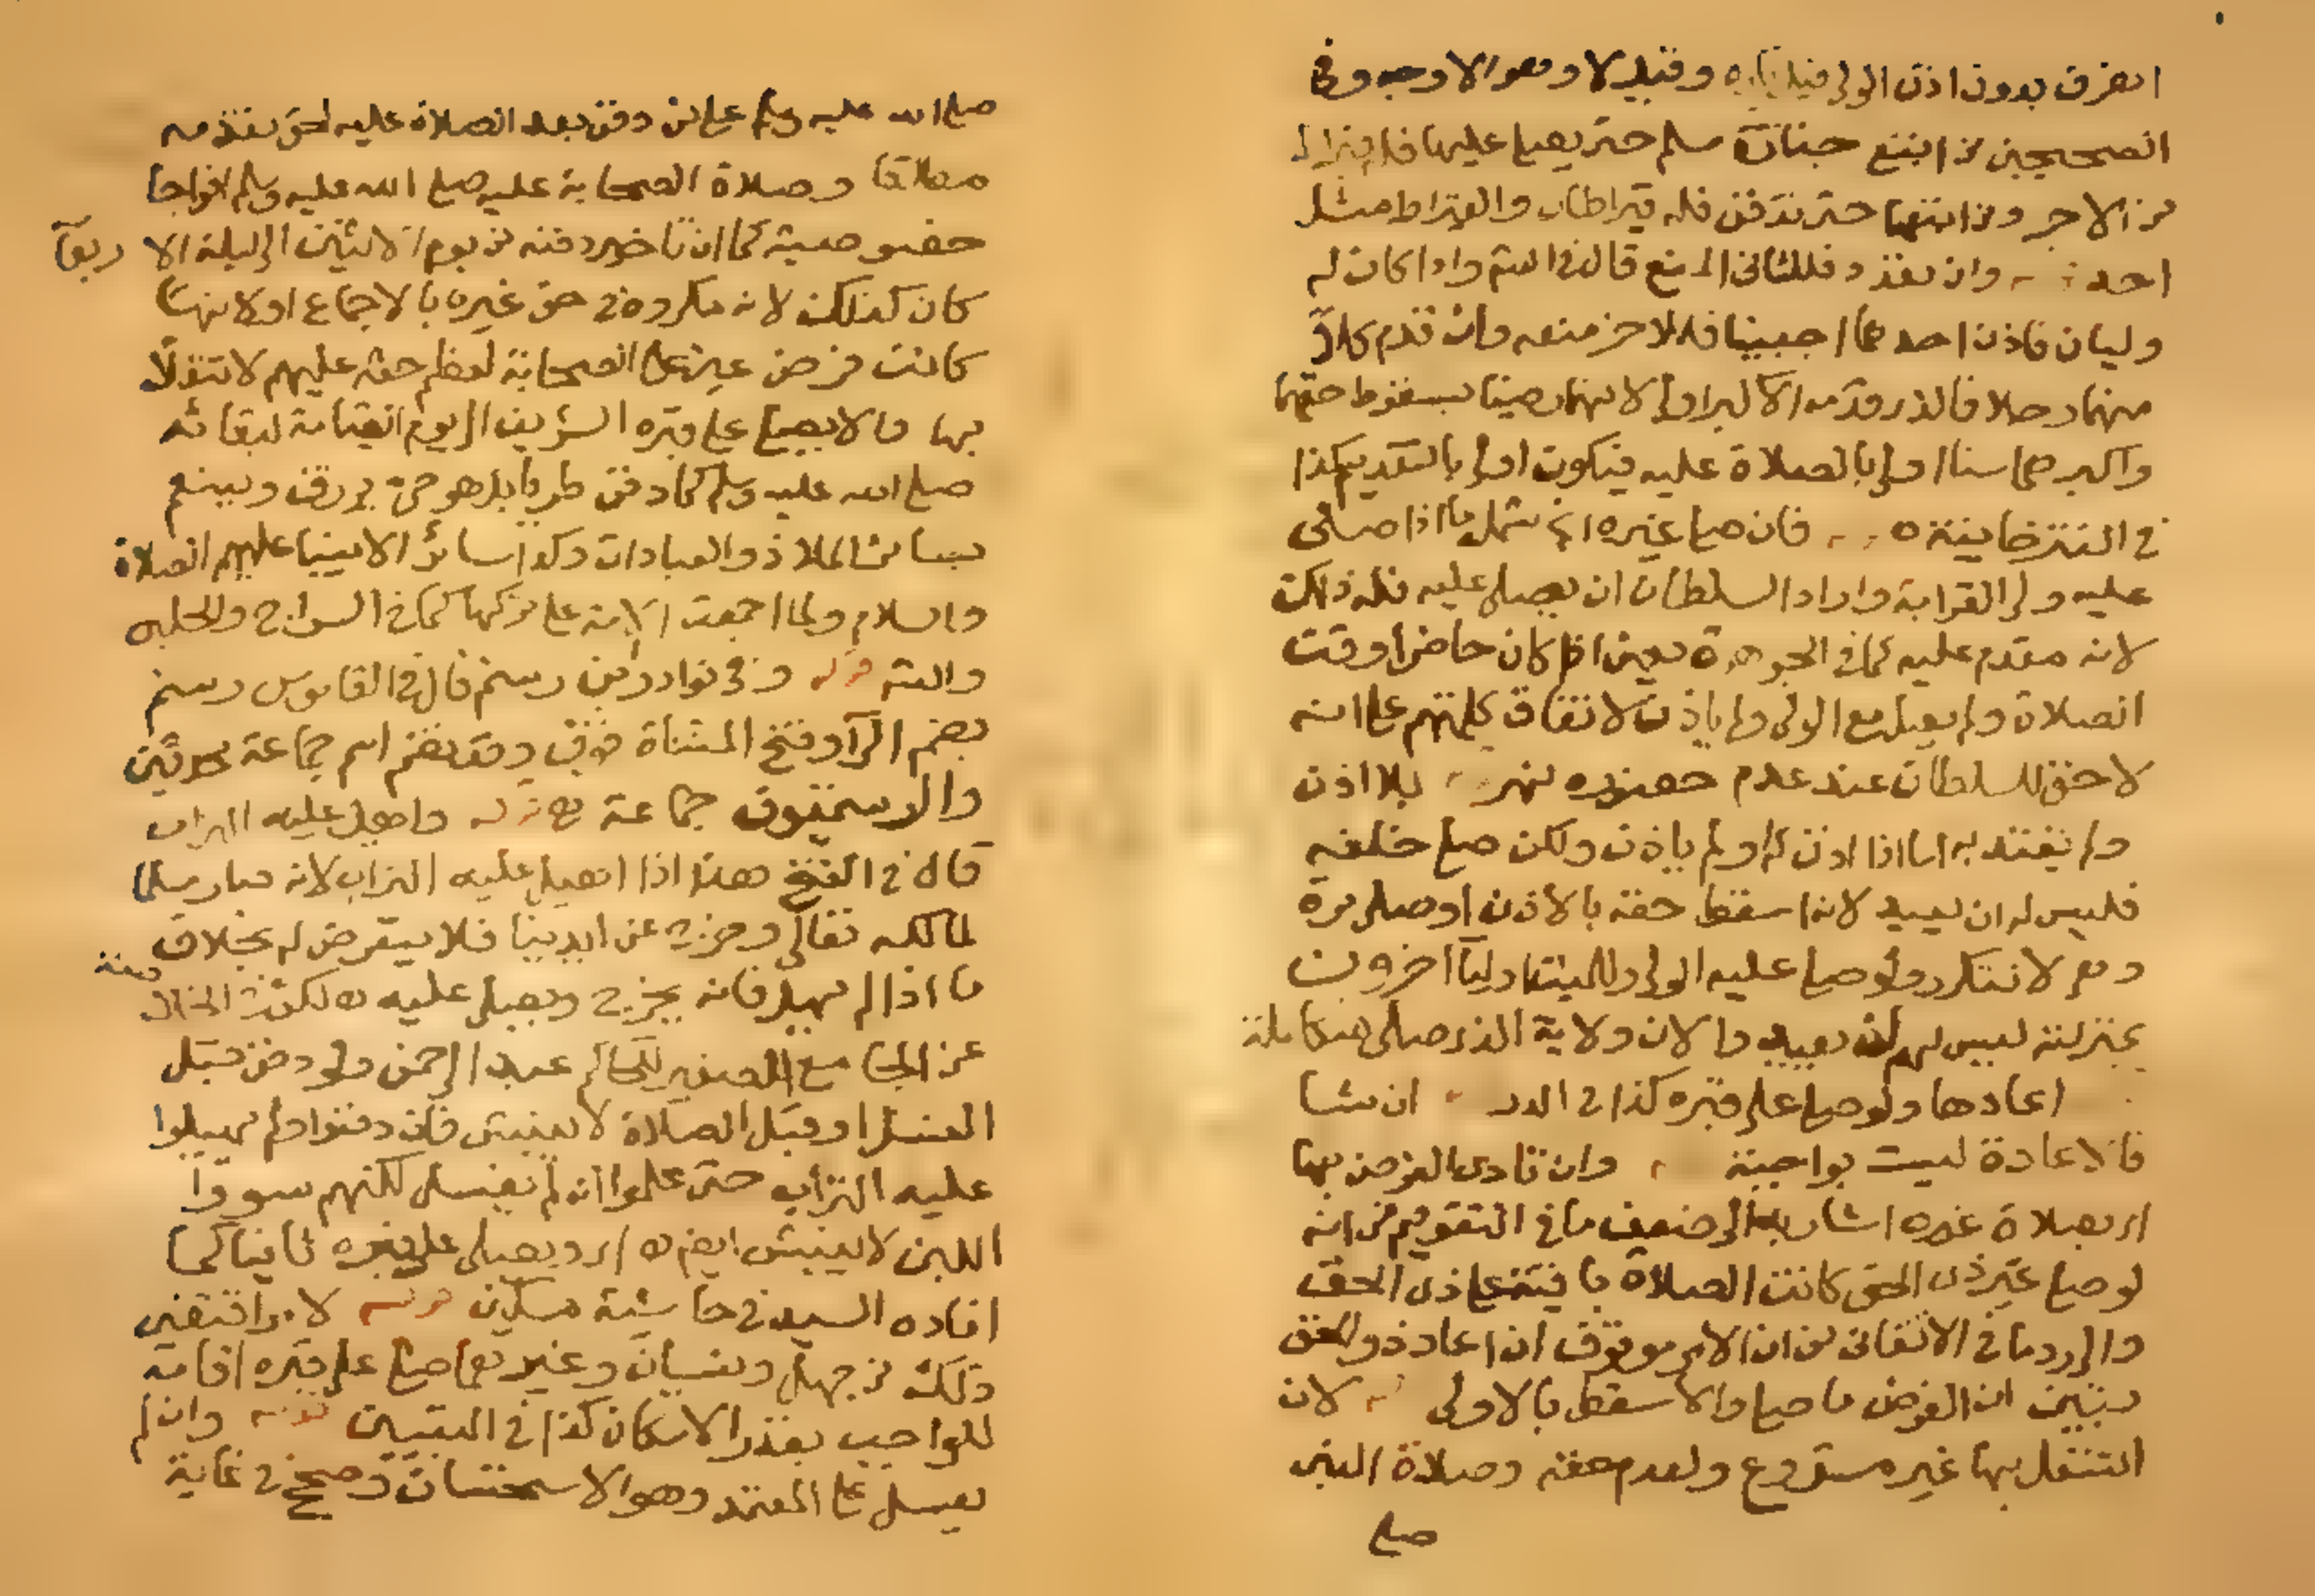 انصرف بدون اذن الولي قيل يكره وقيل لا وهو الاوجه وفي
الصحيحين من اتبع جنازة مسلم حتى يصلي عليها فله قيراط
من الاجر ومن اتبعها حتى تدفن فله قيراطان والقيراط مثل
احد وان تعدد فللثاني المنع قال في الشر واذا كان له
وليان فاذن احدهما اجنبيا فللاخر منعه وان قدم كل
منهما رجلا فالذي قدمه الاكبر اولي لانهما رضيا بسقوط حقهما
واكبرهما سنا اولي بالصلاة عليه فيكون اولي بالتقديم كذا
في التترخانية ه فان صلي غيره اي شمل ما اذا صلي
عليه ولي القرابة واراد السلطان ان يصلي عليه فله ذلك
لانه مقدم عليه كما في الجوهرة يعني اذا كان حاضرا وقت
الصلاة ولم يصل مع الولي ولم ياذن لاتفاق كلمتهم علي انه
لا حق للسلطان عند عدم حضوره نهر بلا اذن
ولم يقتد به اما اذا اذن له او لم ياذن ولكن صلي خلفه
فليس له ان يعيد لانه اسقط حقه بالاذن او صلي مرة
وهي لا تتكرر ولو صلي عليه الولي وللميت اوليآ اخرون
بمنزلته ليس لهم ان يعيدوا لان ولاية الذي صلي متكاملة
اعادها ولو صلي علي قبره كذا في الدر ان شا
فالاعادة ليست بواجبة وان تادي الفرض بها
اي بصلاة غيره اشار به الي ضعف ما في التقويم من انه
لو صلي غير ذي الحق كانت الصلاة باقية علي ذي الحق
والي رد ما في الاتقاني من ان الامر موقوف ان اعاد ذو الحق
تبين ان الفرض ما صلي والا سقط بالاولي لان
التنفل بها غير مشروع ولعدم حقه وصلاة النبي
صلي
صلي الله عليه وسلم علي من دفن بعد الصلاة عليه لحق تقدمه
مطلقا وصلاة الصحابة عليه صلي الله عليه وسلم افواجا
خصوصية كما ان تاخير دفنه من يوم الاثنين الي ليلة الا ربعآ
كان كذلك لانه مكروه في حق غيره بالاجماع او لانها
كانت فرض عين علي الصحابة لعظم حقه عليهم لا تنفلا
بها والا يصلي علي قبره الشريف الي يوم القيامة لبقائه
صلي الله عليه وسلم كما دفن طريا بل هو حي يرزق ويتنعم
بسائر الملاذ والعبادات وكذا سائر الانبيا عليهم الصلاة
والسلام ولما اجمعت الامة علي تركها كما في السراج والحلبي
والشر قوله وفي نوادر ابن رستم قال في القاموس رستم
بضم الرآ وفتح المثناة فوق وقد تضم اسم جماعة محدثين
والرستميون جماعة قوله واهيل عليه التراب
قال في الفتح هذا اذا اهيل عليه التراب لانه صار مسلما
لمالكه تعالي وخرج عن ايدينا فلا يتعرض له بخلاف
ما اذا لم يهل فانه يخرج ويصلي عليه ه لكن في الخانية
عن الجامع الصغير للحاكم عبد الرحمن ولو دفن قبل
الغسل او قبل الصلاة لا ينبش فان دفنوا ولم يهيلوا
عليه التراب حتي علموا انه لم يغسل لكنهم سووا
اللبن لا ينبش ايضا ه اي ويصلي علي قبره ثانيا كما
افاده السيد في حاشية مسكين قوله لامر اقتضي
ذلك من جهل ونسيان وغيرهما صلي علي قبره اقامة
للواجب بقدر الامكان كذا في التبيين قوله وان لم
يغسل علي المعتمد وهو الاستحسان وصحح في غاية